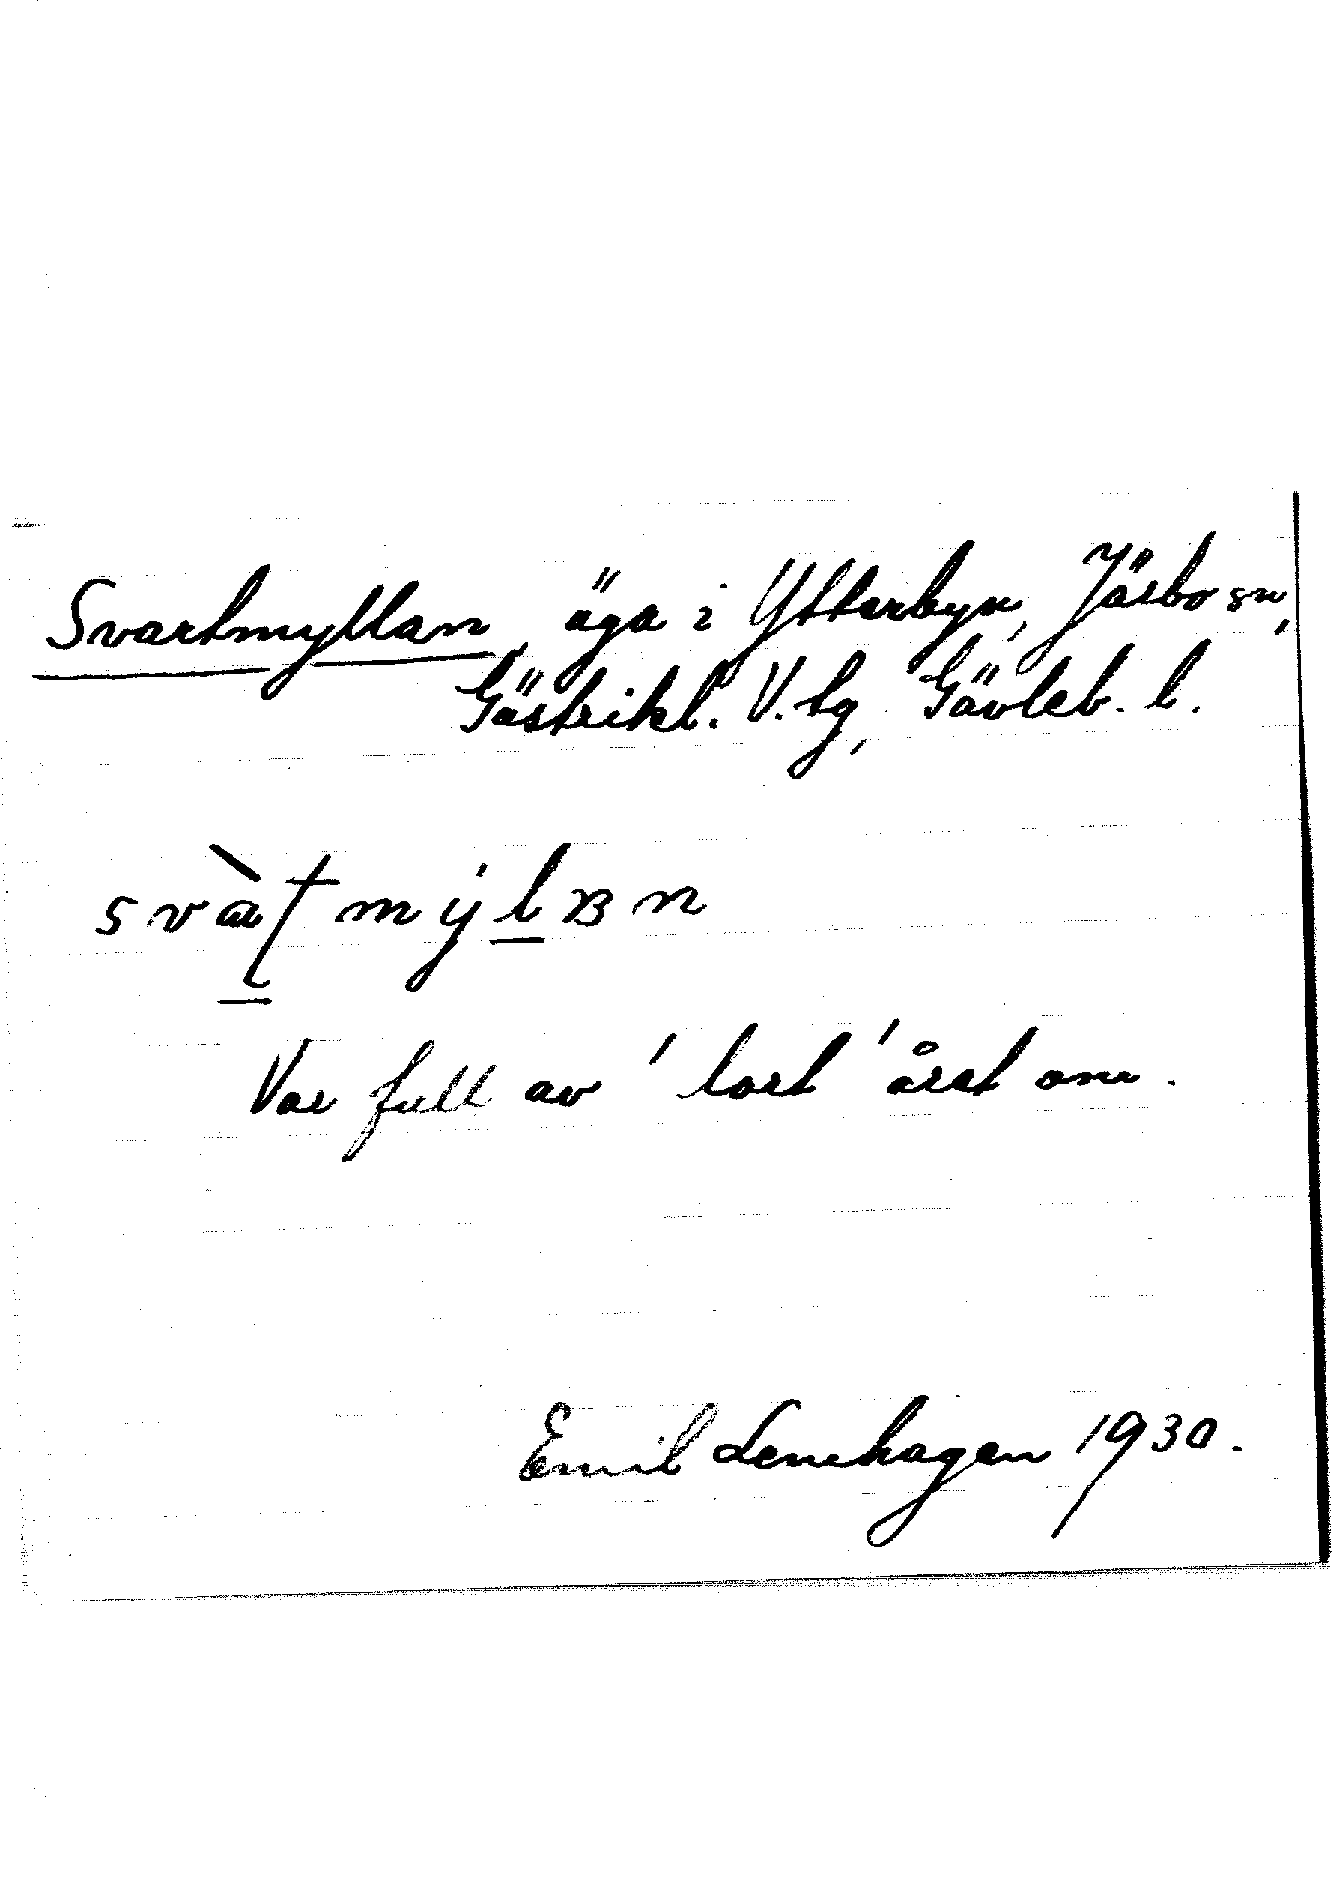 Svartmyllan, äga i Ytterbyn, Järbo sn,
Gästrikl. V. tg, Gävleb. l.
Var full av 'lort' året om.
Emil Lenhagen 1930.